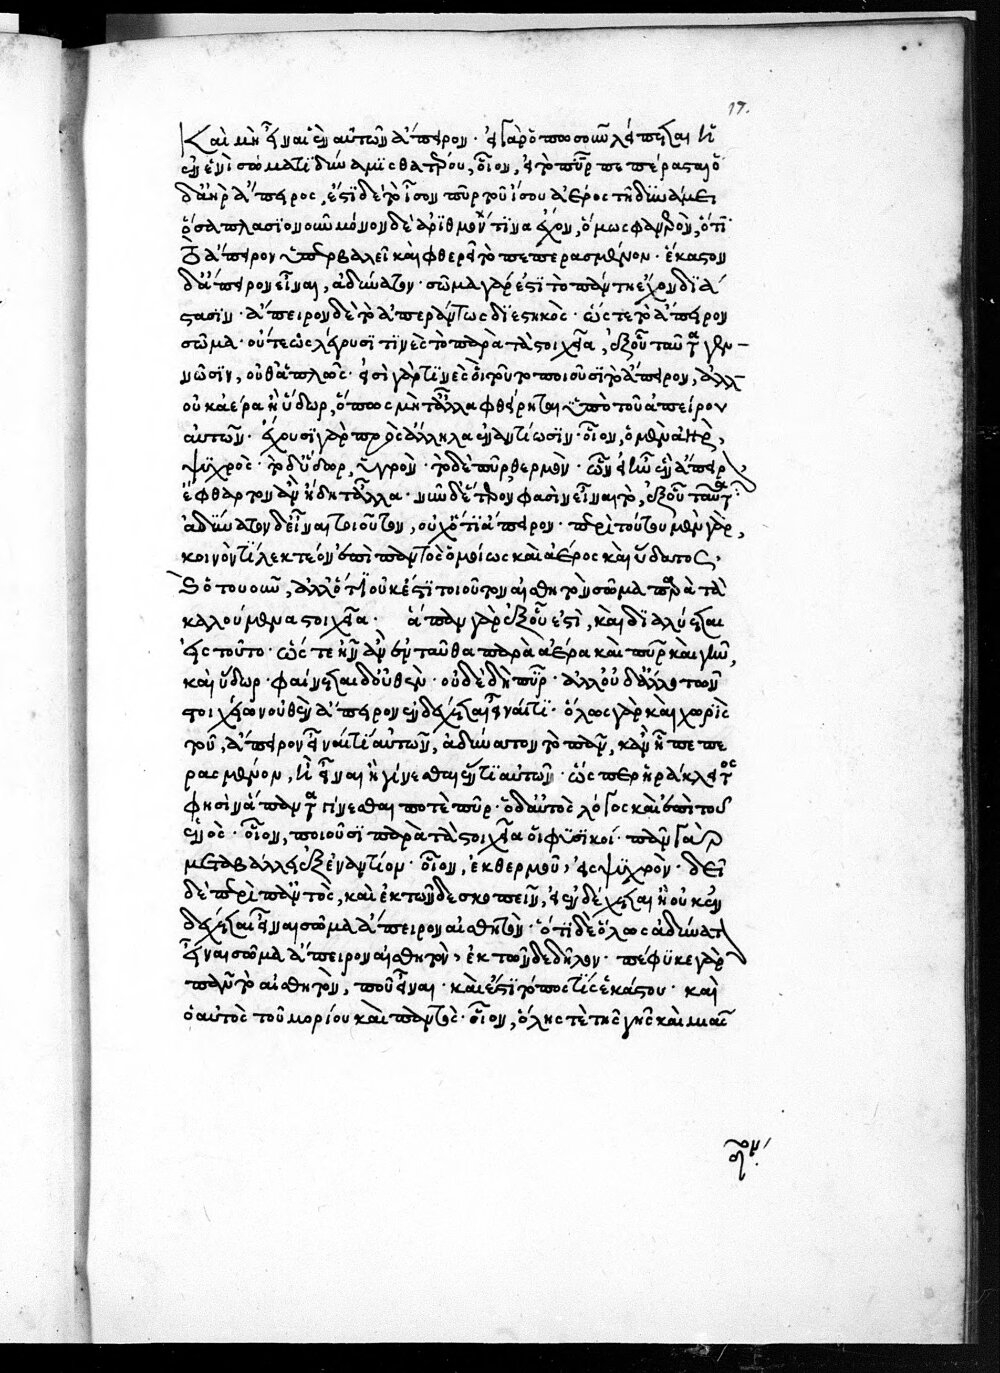 17.
Καὶ μὴ εἶναι ἓν αὐτῶν ἄπειρον· εἰ γὰρ ὁπωσοῦν λείπεται ἡ
ἐν ἑνὶ σώματι δύναμις θατέρου, οἷον, εἰ τὸ πῦρ πεπέρασται ὁ
δ' ἀὴρ ἄπειρος, ἔστι δὲ τὸ ἴσον πῦρ τοῦ ἴσου ἀέρος τῇ δυνάμει
ὁσαπλασιονοῦν μόνον δὲ ἀριθμόν τινα ἔχον, ὅμως φανερὸν, ὅτι
τὸ ἄπειρον ὑπερβαλεῖ καὶ φθερεῖ τὸ πεπερασμένον· ἕκαστον
δ' ἄπειρον εἶναι, ἀδύνατον· σῶμα γάρ ἐστι τὸ πάντῃ ἔχον διά
στασιν· ἄπειρον δὲ τὸ ἀπεράντως διεστηκὸς· ὥστε τὸ ἄπειρον
σῶμα· οὔτε ὡς λέγουσί τινες τὸ παρὰ τὰ στοιχεῖα, ἐξ οὗ ταῦτα γεν-
νῶσιν, οὔθ' ἁπλῶς· εἰσὶ γάρ τινες οἳ τοῦτο ποιοῦσι τὸ ἄπειρον, ἀλλ-
οὐκ ἀέρα ἢ ὕδωρ, ὅπως μὴ τἆλλα φθείρηται ὑπὸ τοῦ ἀπείρου
αὐτῶν· ἔχουσι γὰρ πρὸς ἄλληλα ἐναντίωσιν· οἷον, ὁ μὲν ἀὴρ,
ψυχρὸς· τὸ δ' ὕδωρ, ὑγρὸν· τὸ δὲ πῦρ, θερμὸν· ὧν εἰ ἦν ἓν ἄπειρον
ἔφθαρτο ἂν ἤδη τἆλλα· νῦν δ' ἕτερον φασὶν εἶναι τὸ, ἐξ οὗ ταῦτα·
ἀδύνατον δ' εἶναι τοιοῦτον, οὐχ ὅτι ἄπειρον· περὶ τούτου μὲν γὰρ,
κοινόν τι λεκτέον ἐπὶ παντὸς ὁμοίως καὶ ἀέρος καὶ ὕδατος,
καὶ ὁτουοῦν, ἀλλ' ὅτι οὐκ ἔστι τοιοῦτον αἰσθητὸν σῶμα παρὰ τὰ
καλούμενα στοιχεῖα· ἅπαν γὰρ ἐξ οὗ ἐστὶ, καὶ διαλύεται
εἰς τοῦτο· ὥστε ἦν ἂν ἐνταῦθα παρὰ ἀέρα καὶ πῦρ καὶ γῆν,
καὶ ὕδωρ· φαίνεται δ' οὐθὲν· οὐδὲ δὴ πῦρ· ἀλλ' οὐδ' ἄλλο τῶν
στοιχείων οὐθὲν ἄπειρον ἐνδέχεται εἶναί τι· ὅλως γὰρ καὶ χωρὶς
τοῦ, ἄπειρον εἶναί τι αὐτῶν, ἀδύνατον τὸ πᾶν, κἂν ᾖ πεπε
ρασμένον, ἢ εἶναι ἢ γίνεσθαι ἕν τι αὐτῶν· ὥσπερ ἡράκλειτος
φησὶν ἅπαντα γίνεσθαι ποτὲ πῦρ· ὁ δ' αὐτὸς λόγος καὶ ἐπὶ τοῦ
ἑνὸς· οἷον, ποιοῦσι παρὰ τὰ στοιχεῖα οἱ φυσικοί· πᾶν γὰρ
μεταβάλλει ἐξ ἐναντίου· οἷον, ἐκ θερμοῦ, εἰς ψυχρὸν· δεῖ
δὲ περὶ παντὸς, καὶ ἐκ τῶνδε σκοπεῖν, εἰ ἐνδέχεται ἢ οὐκ ἐν
δέχεται εἶναι σῶμα ἄπειρον αἰσθητὸν· ὅτι δὲ ὅλως ἀδύνατον
εἶναι σῶμα ἄπειρον αἰσθητὸν, ἐκ τῶνδε δῆλον· πέφυκε γὰρ
πᾶν τὸ αἰσθητὸν, ποῦ εἶναι· καὶ ἔστι τόπος τίς ἑκάστου· καὶ
ὁ αὐτὸς τοῦ μορίου καὶ παντὸς· οἷον, ὅλης τὲ τῆς γῆς καὶ μιᾶς